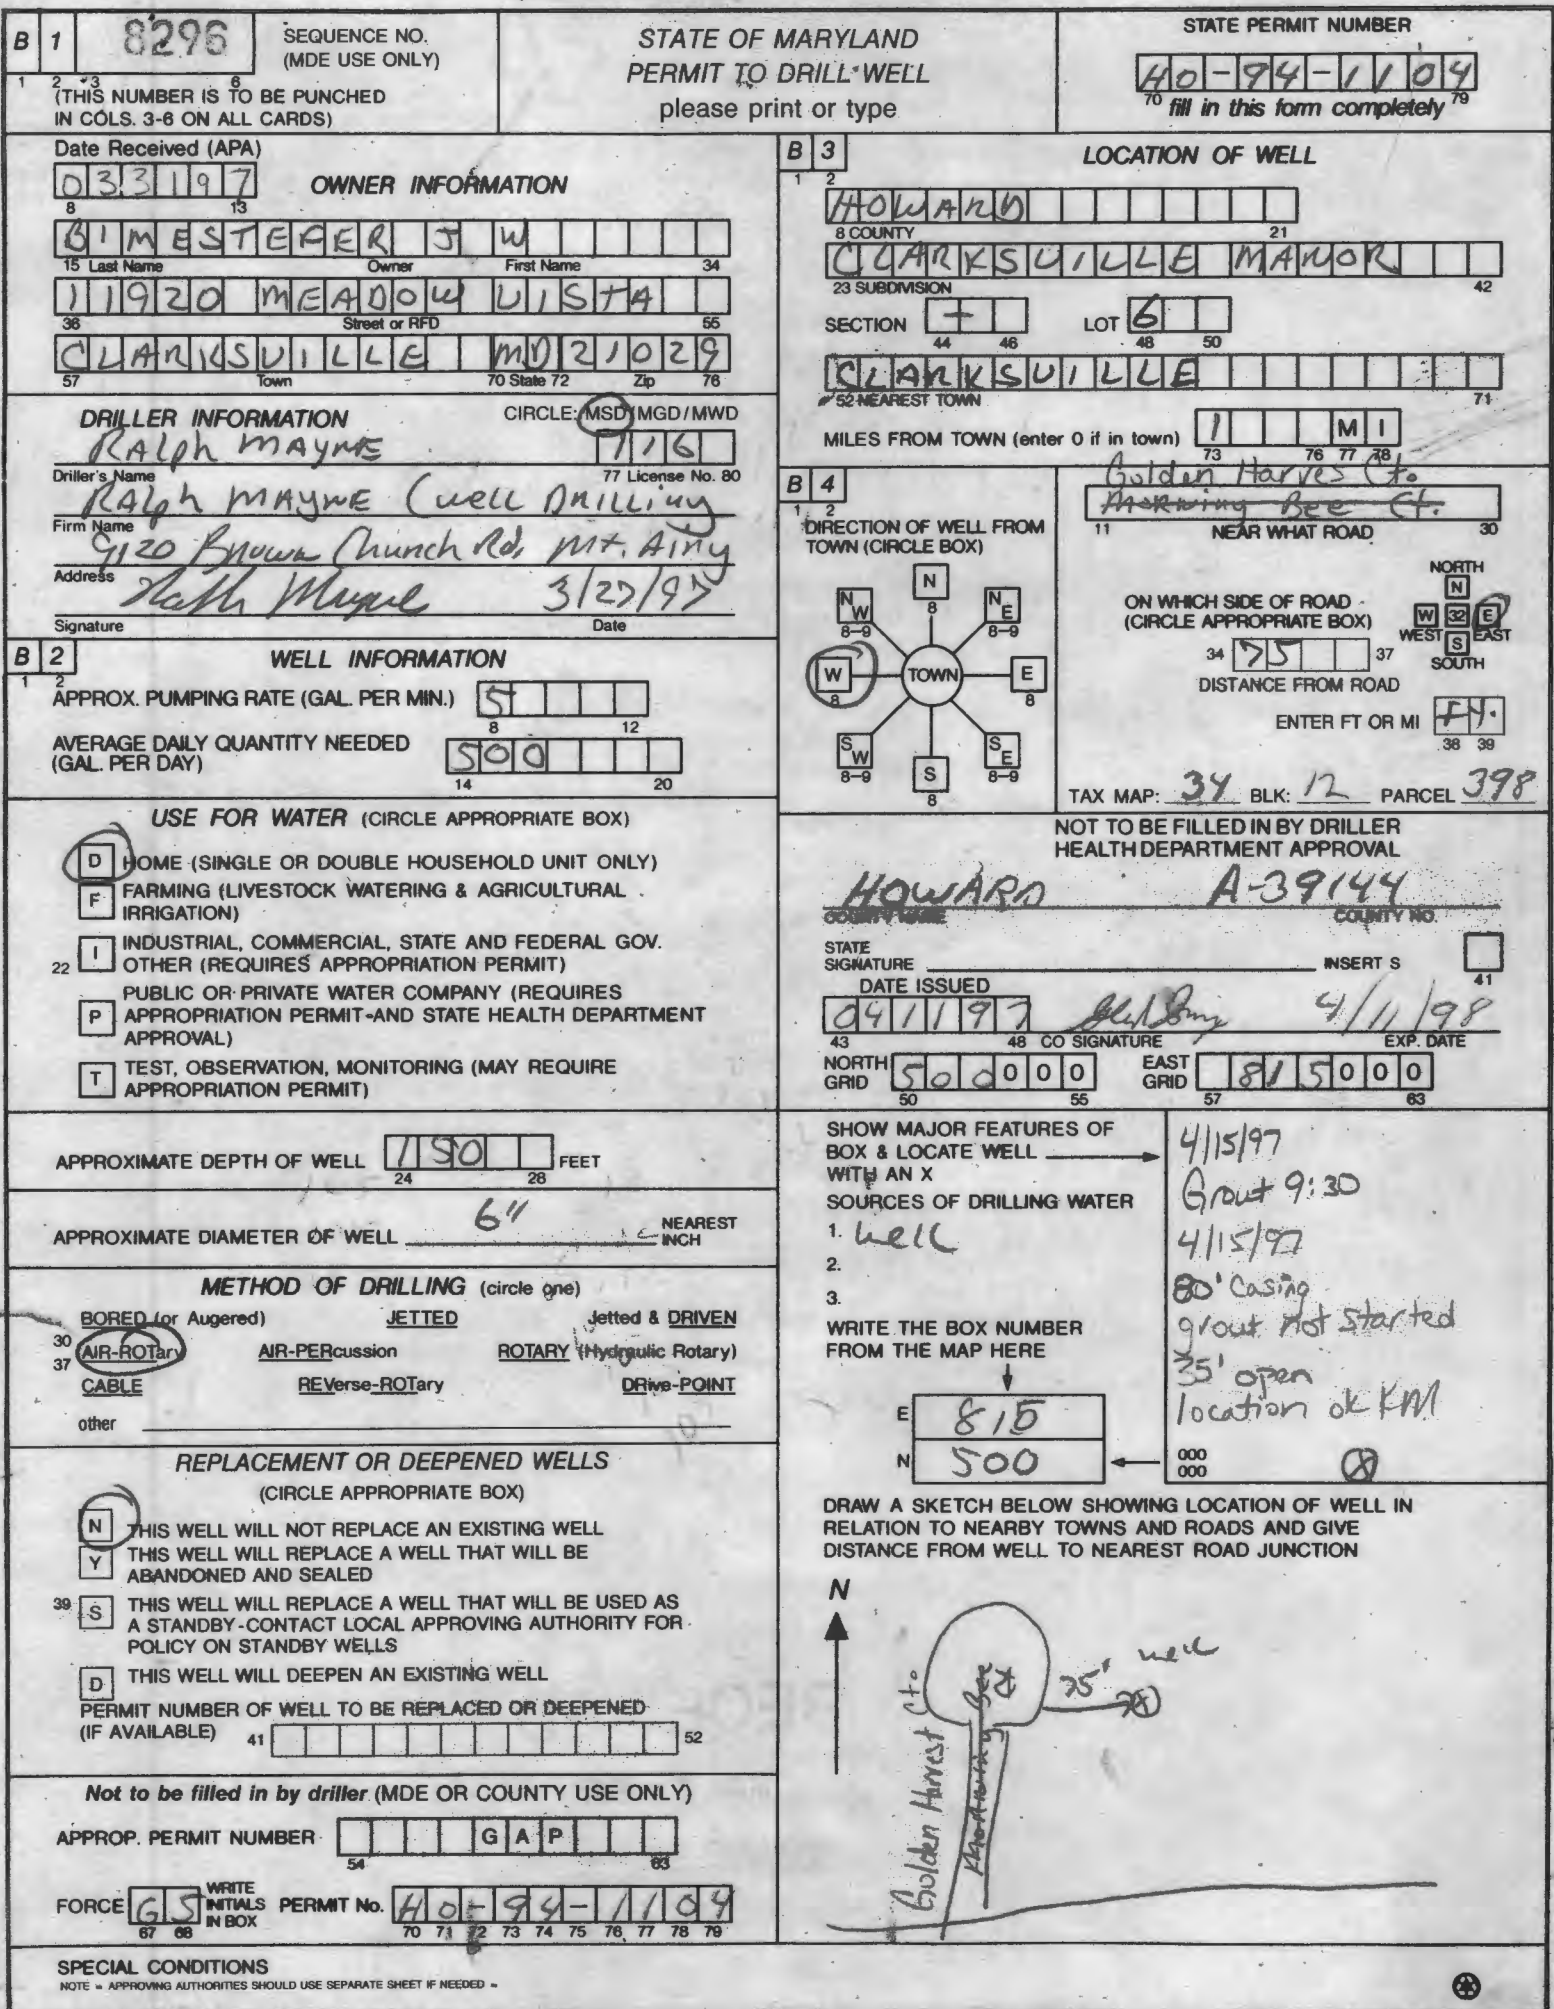 B 1 8296 SEQUENCE NO. (MDE USE ONLY)
1 2 3 6
(THIS NUMBER IS TO BE PUNCHED
IN COLS. 3-6 ON ALL CARDS)
STATE OF MARYLAND
PERMIT TO DRILL WELL
please print or type
STATE PERMIT NUMBER
HO-94-1104
70 fill in this form completely 79
Date Received (APA)
033197
8 13
OWNER INFORMATION
BIMESTEFER J W
15 Last Name Owner First Name 34
11920 MEADOW VISTA
36 Street or RFD 55
CLARKSVILLE MD 21029
57 Town 70 State 72 Zip 76
DRILLER INFORMATION
CIRCLE: MSD/MGD/MWD
RALPH MAYNE 116
Driller's Name 77 License No. 80
RALPH MAYNE (WELL DRILLING
Firm Name
9120 Brown Church Rd, Mt. Airy
Address
Ralph Mayne 3/27/97
Signature Date
B 2 WELL INFORMATION
1 2
APPROX. PUMPING RATE (GAL. PER MIN.) 5
8 12
AVERAGE DAILY QUANTITY NEEDED
(GAL. PER DAY) 500
14 20
USE FOR WATER (CIRCLE APPROPRIATE BOX)
D HOME (SINGLE OR DOUBLE HOUSEHOLD UNIT ONLY)
F FARMING (LIVESTOCK WATERING & AGRICULTURAL
IRRIGATION)
22 I INDUSTRIAL, COMMERCIAL, STATE AND FEDERAL GOV.
OTHER (REQUIRES APPROPRIATION PERMIT)
PUBLIC OR PRIVATE WATER COMPANY (REQUIRES
P APPROPRIATION PERMIT AND STATE HEALTH DEPARTMENT
APPROVAL)
T TEST, OBSERVATION, MONITORING (MAY REQUIRE
APPROPRIATION PERMIT)
APPROXIMATE DEPTH OF WELL 150 FEET
24 28
APPROXIMATE DIAMETER OF WELL 6" NEAREST
INCH
METHOD OF DRILLING (circle one)
BORED (or Augered) JETTED Jetted & DRIVEN
30 AIR-ROTary AIR-PERcussion ROTARY (Hydraulic Rotary)
37
CABLE REVerse-ROTary DRive-POINT
other
REPLACEMENT OR DEEPENED WELLS
(CIRCLE APPROPRIATE BOX)
N THIS WELL WILL NOT REPLACE AN EXISTING WELL
Y THIS WELL WILL REPLACE A WELL THAT WILL BE
ABANDONED AND SEALED
39 S THIS WELL WILL REPLACE A WELL THAT WILL BE USED AS
A STANDBY-CONTACT LOCAL APPROVING AUTHORITY FOR
POLICY ON STANDBY WELLS
D THIS WELL WILL DEEPEN AN EXISTING WELL
PERMIT NUMBER OF WELL TO BE REPLACED OR DEEPENED
(IF AVAILABLE) 41 52
Not to be filled in by driller (MDE OR COUNTY USE ONLY)
APPROP. PERMIT NUMBER GAP
54 63
FORCE GS WRITE INITIALS IN BOX PERMIT No. HO-94-1104
67 68 70 71 72 73 74 75 76 77 78 79
SPECIAL CONDITIONS
NOTE = APPROVING AUTHORITIES SHOULD USE SEPARATE SHEET IF NEEDED =
B 3 LOCATION OF WELL
1 2
HOWARD
8 COUNTY 21
CLARKSVILLE MANOR
23 SUBDIVISION 42
SECTION LOT 6
44 46 48 50
CLARKSVILLE
52 NEAREST TOWN 71
MILES FROM TOWN (enter 0 if in town) 1 MI
73 76 77 78
B 4
1 2
DIRECTION OF WELL FROM
TOWN (CIRCLE BOX)
N 8
NW 8-9 NE 8-9
W 8 TOWN E 8
SW 8-9 SE 8-9
S 8
Golden Harves Ct.
Morning Bee Ct.
11 NEAR WHAT ROAD 30
ON WHICH SIDE OF ROAD
(CIRCLE APPROPRIATE BOX)
NORTH
N
W 32 E
WEST EAST
S
SOUTH
34 75 37
DISTANCE FROM ROAD
ENTER FT OR MI FT.
38 39
TAX MAP: 34 BLK: 12 PARCEL 398
NOT TO BE FILLED IN BY DRILLER
HEALTH DEPARTMENT APPROVAL
HOWARD A-39144
COUNTY NAME COUNTY NO.
STATE
SIGNATURE INSERT S
41
DATE ISSUED
041197 4/11/98
43 48 CO SIGNATURE EXP. DATE
NORTH GRID 500000 EAST GRID 815000
50 55 57 63
SHOW MAJOR FEATURES OF
BOX & LOCATE WELL
WITH AN X
SOURCES OF DRILLING WATER
1. Well
2.
3.
WRITE THE BOX NUMBER
FROM THE MAP HERE
E 815
N 500
4/15/97
Grout 9:30
4/15/97
80' Casing
grout not started
35' open
location ok KM
000
000
DRAW A SKETCH BELOW SHOWING LOCATION OF WELL IN
RELATION TO NEARBY TOWNS AND ROADS AND GIVE
DISTANCE FROM WELL TO NEAREST ROAD JUNCTION
N
75' well
Golden Harvest Ct.
Morning Bee Ct